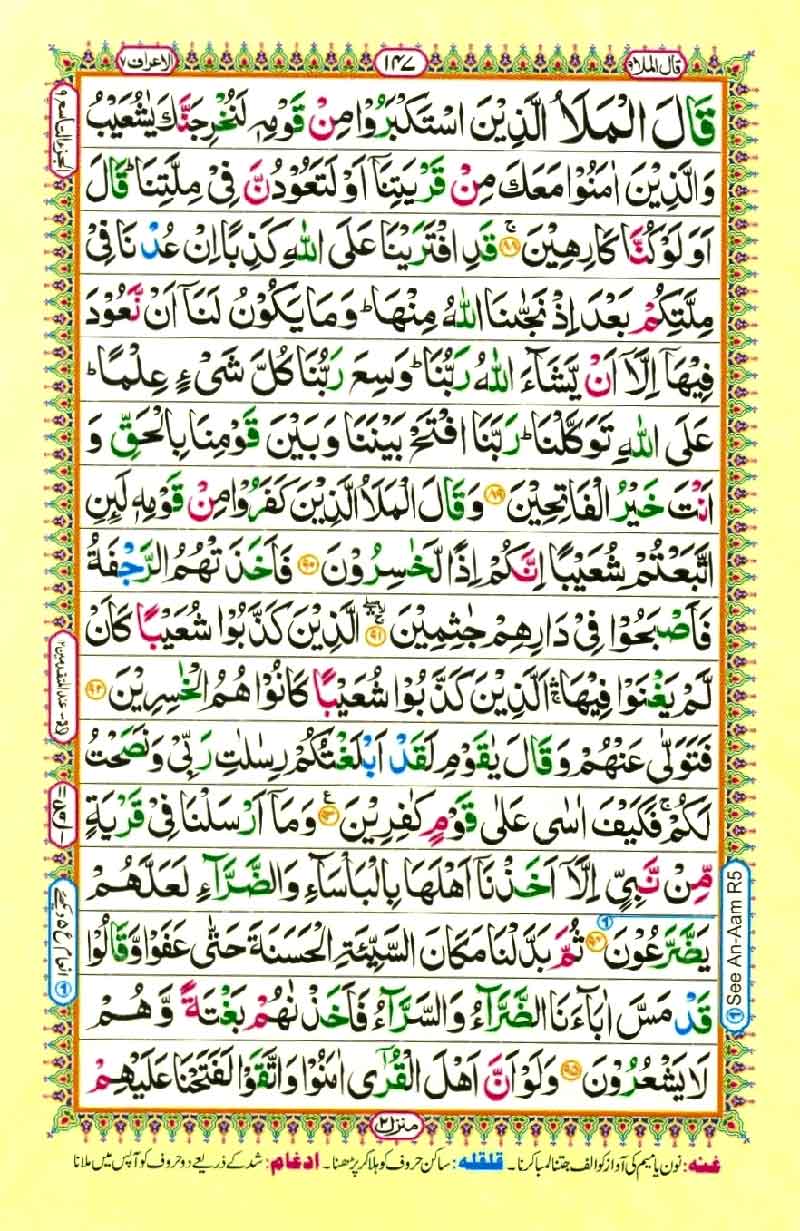 قال الملا٩
١٤٧
الاعراف٧
قَالَ الْمَلَاُ الَّذِيْنَ اسْتَكْبَرُوْا مِنْ قَوْمِهٖ لَنُخْرِجَنَّكَ يٰشُعَيْبُ
وَالَّذِيْنَ اٰمَنُوْا مَعَكَ مِنْ قَرْيَتِنَاۤ اَوْ لَتَعُوْدُنَّ فِيْ مِلَّتِنَا ؕ قَالَ
اَوَلَوْ كُنَّا كَارِهِيْنَ ۚ۟ ۸۸ قَدِ افْتَرَيْنَا عَلَى اللّٰهِ كَذِبًا اِنْ عُدْنَا فِيْ
مِلَّتِكُمْ بَعْدَ اِذْ نَجّٰىنَا اللّٰهُ مِنْهَا ؕ وَمَا يَكُوْنُ لَنَاۤ اَنْ نَّعُوْدَ
فِيْهَاۤ اِلَّاۤ اَنْ يَّشَآءَ اللّٰهُ رَبُّنَا ؕ وَسِعَ رَبُّنَا كُلَّ شَيْءٍ عِلْمًا ؕ
عَلَى اللّٰهِ تَوَكَّلْنَا ؕ رَبَّنَا افْتَحْ بَيْنَنَا وَبَيْنَ قَوْمِنَا بِالْحَقِّ وَ
اَنْتَ خَيْرُ الْفَاتِحِيْنَ ۸۹ وَقَالَ الْمَلَاُ الَّذِيْنَ كَفَرُوْا مِنْ قَوْمِهٖ لَىِٕنِ
اتَّبَعْتُمْ شُعَيْبًا اِنَّكُمْ اِذًا لَّخٰسِرُوْنَ ۹۰ فَاَخَذَتْهُمُ الرَّجْفَةُ
فَاَصْبَحُوْا فِيْ دَارِهِمْ جٰثِمِيْنَ ۹۱ الَّذِيْنَ كَذَّبُوْا شُعَيْبًا كَاَنْ
لَّمْ يَغْنَوْا فِيْهَا ۛۚ اَلَّذِيْنَ كَذَّبُوْا شُعَيْبًا كَانُوْا هُمُ الْخٰسِرِيْنَ ۹۲
فَتَوَلّٰى عَنْهُمْ وَقَالَ يٰقَوْمِ لَقَدْ اَبْلَغْتُكُمْ رِسٰلٰتِ رَبِّيْ وَنَصَحْتُ
لَكُمْ ۚ فَكَيْفَ اٰسٰى عَلٰى قَوْمٍ كٰفِرِيْنَ ۹۳ وَمَاۤ اَرْسَلْنَا فِيْ قَرْيَةٍ
مِّنْ نَّبِيٍّ اِلَّاۤ اَخَذْنَاۤ اَهْلَهَا بِالْبَاْسَآءِ وَالضَّرَّآءِ لَعَلَّهُمْ
يَضَّرَّعُوْنَ ۹۴ ثُمَّ بَدَّلْنَا مَكَانَ السَّيِّئَةِ الْحَسَنَةَ حَتّٰى عَفَوْا وَّقَالُوْا
قَدْ مَسَّ اٰبَآءَنَا الضَّرَّآءُ وَالسَّرَّآءُ فَاَخَذْنٰهُمْ بَغْتَةً وَّهُمْ
لَا يَشْعُرُوْنَ ۹۵ وَلَوْ اَنَّ اَهْلَ الْقُرٰۤى اٰمَنُوْا وَاتَّقَوْا لَفَتَحْنَا عَلَيْهِمْ
الجزء التاسع ۹
انعام ع ۵ دیکھئے
See An-Aam R5
منزل۲
غنه: نون یا میم کی آواز کو الف جتنا لمبا کرنا۔ قلقله: ساکن حروف کو ہلا کر پڑھنا۔ ادغام: شد کے ذریعے دو حروف کو آپس میں ملانا